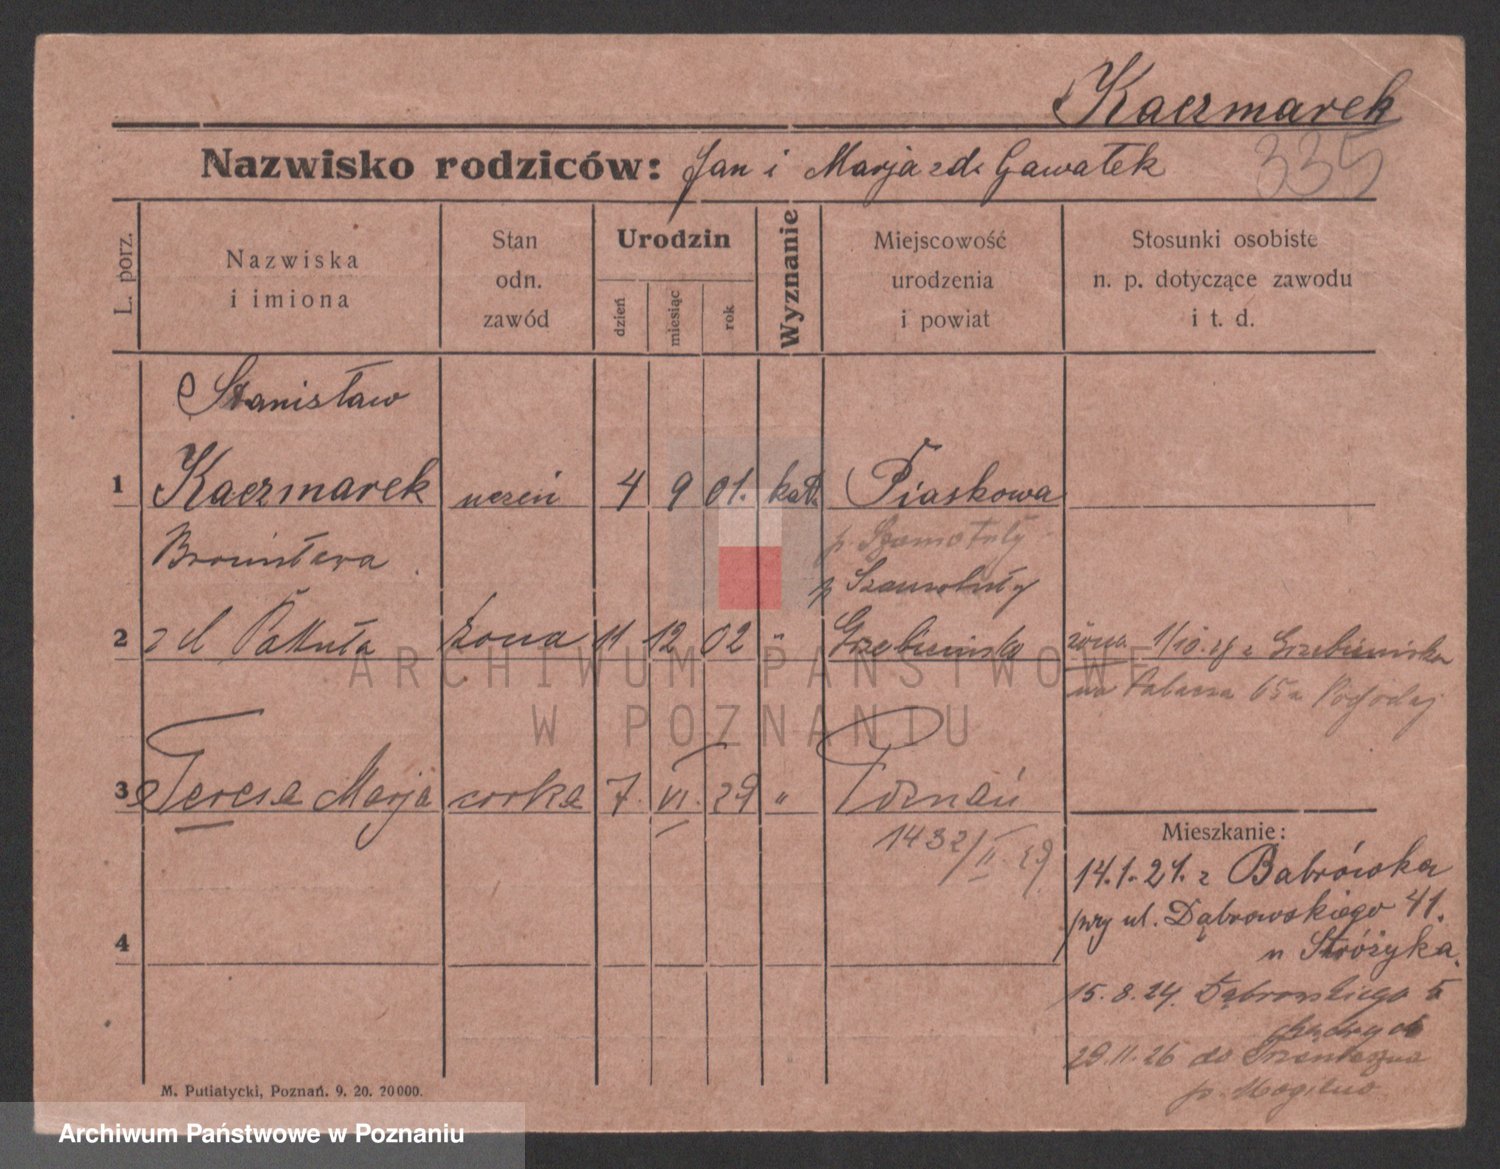 Kaczmarek
335
Nazwisko rodziców: Jan i Marja zd. Gawałek
L. porz.
Nazwiska i imiona
Stan odn. zawód
Urodzin
dzień
miesiąc
rok
Wyznanie
Miejscowość urodzenia i powiat
Stosunki osobiste n. p. dotyczące zawodu i t. d.
Stanisław
1 Kaczmarek uczeń 4 9 01. kat. Piaskowa
p. Szamotuły
Bronisława p Szamotuły
2 zd Pakuła żona 11 12 02 " Grzebienisko żona 1/10.28 z Grzebieniska
na 65a
3 Teresa Marja córka 7. VI. 29 " Poznań
1432/II 29
Mieszkanie:
14.1.21. z Babrówka
przy ul. Dąbrowskiego 41.
u Stróżyka.
4
15.8.24. Dąbrowskiego 5
29.11.26 do
p. Mogilno
M. Putiatycki, Poznań. 9. 20. 20000.
ARCHIWUM PAŃSTWOWE
W POZNANIU
Archiwum Państwowe w Poznaniu